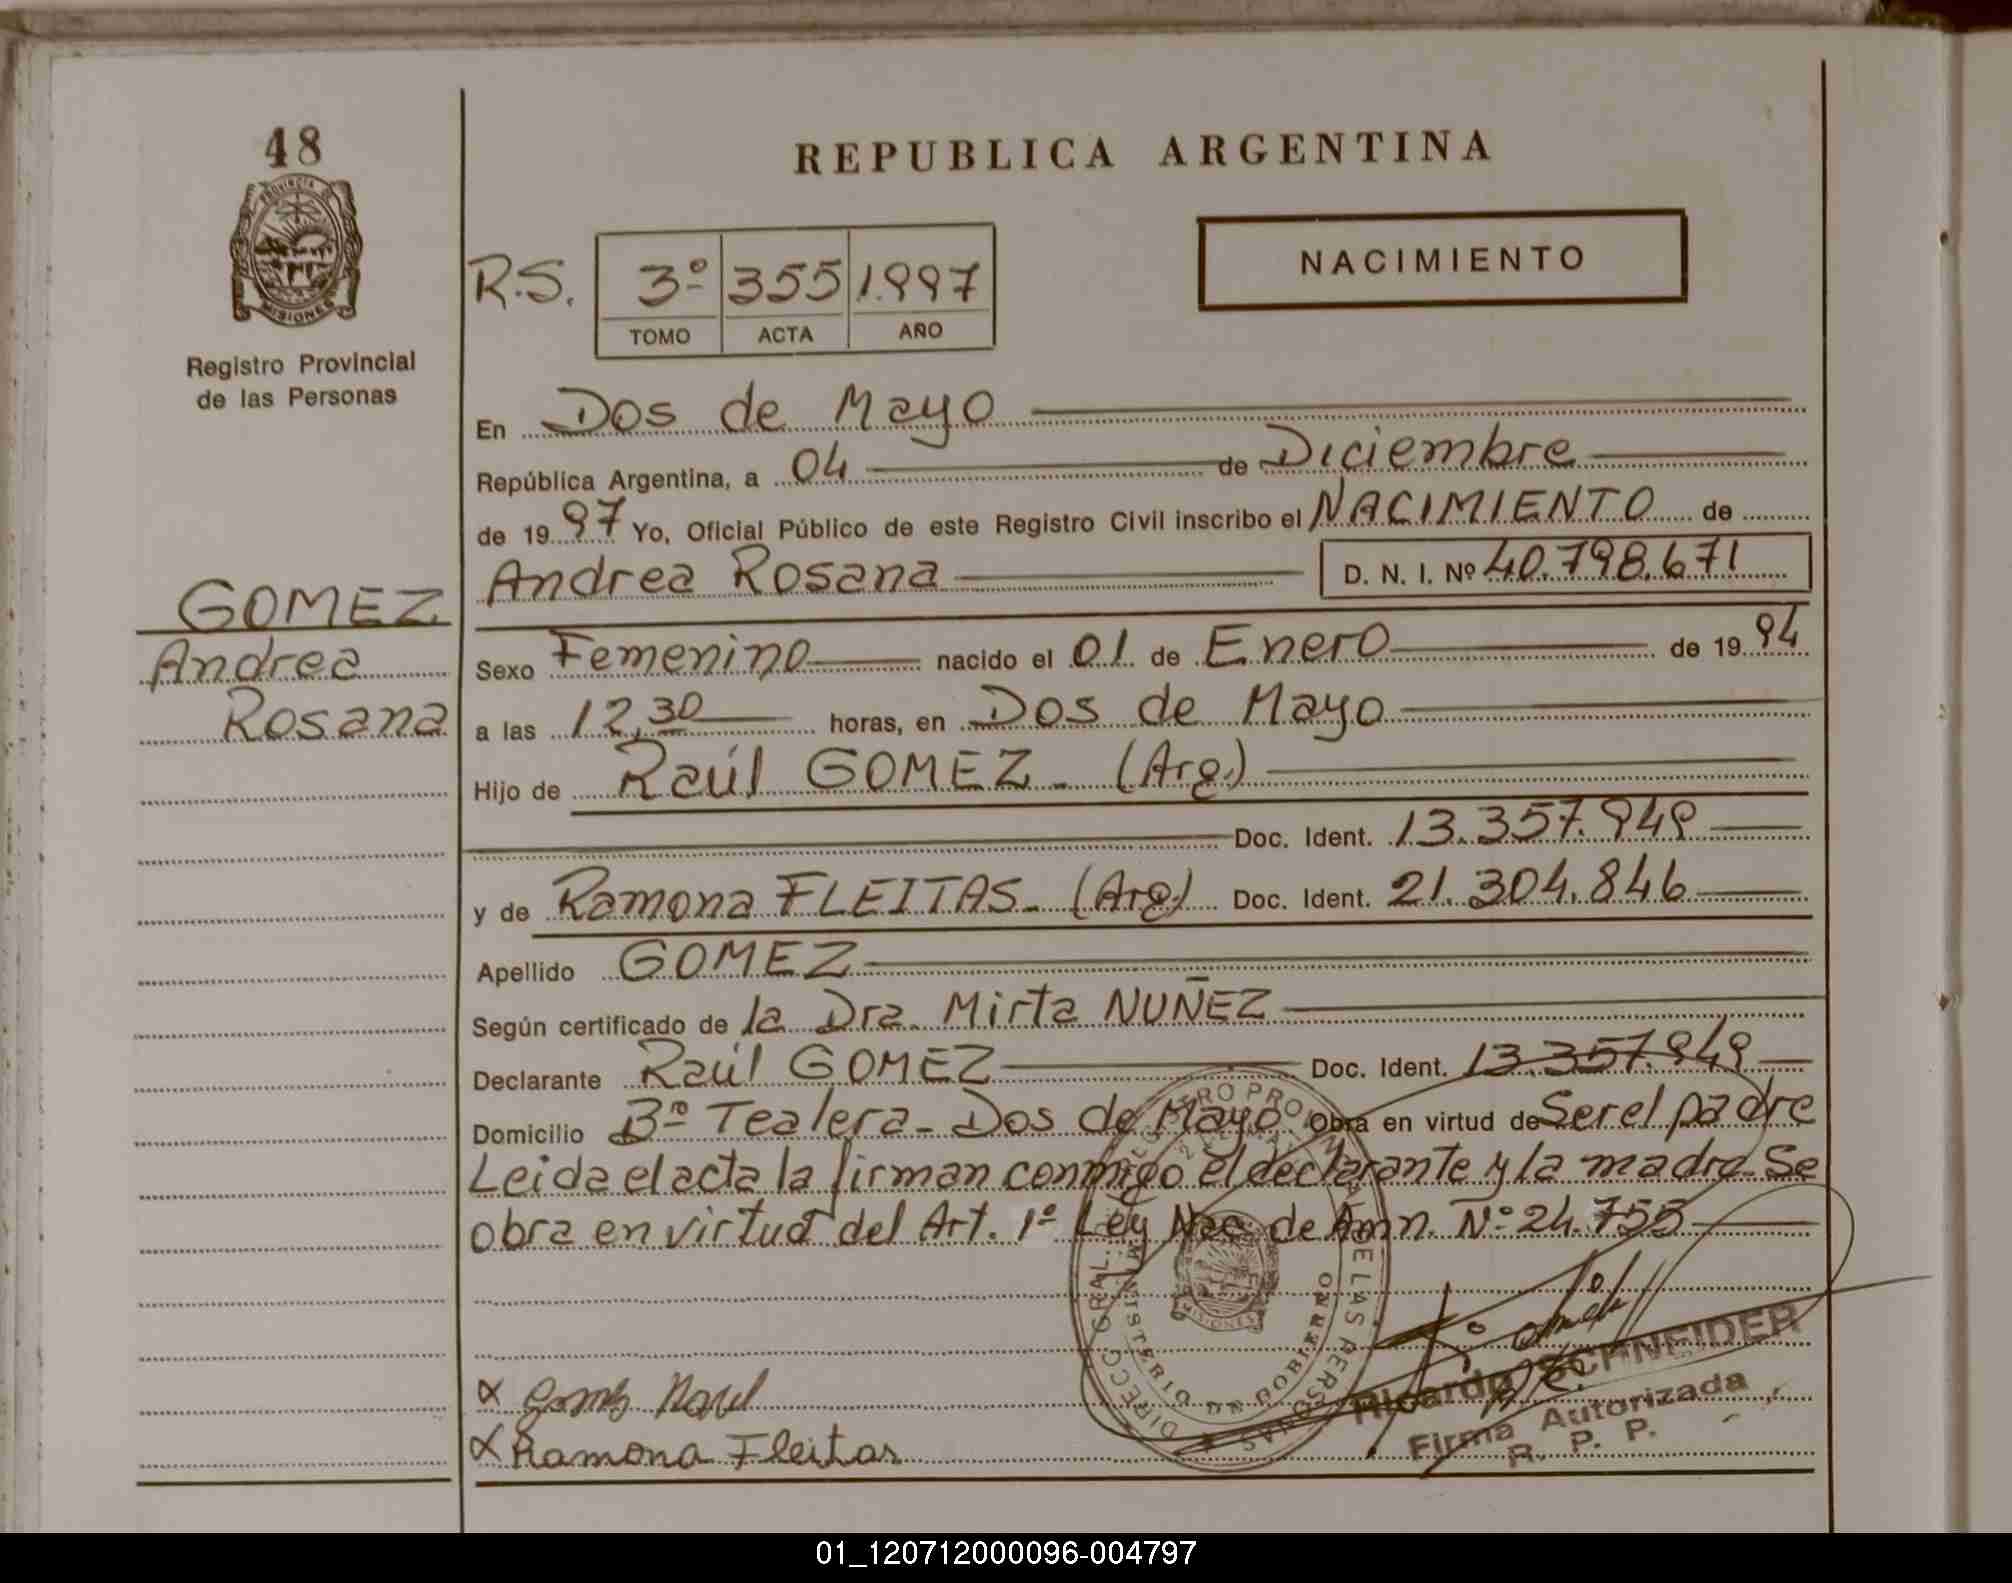 48
PROVINCIA DE
MISIONES
Registro Provincial
de las Personas
GOMEZ
Andrea
Rosana
REPUBLICA ARGENTINA
R.S. 3º 355 1.997
TOMO ACTA AÑO
NACIMIENTO
En Dos de Mayo
República Argentina, a 04 de Diciembre
de 1997 Yo, Oficial Público de este Registro Civil inscribo el NACIMIENTO de
Andrea Rosana D. N. I. Nº 40.798.671
Sexo Femenino nacido el 01 de Enero de 1994
a las 12,30 horas, en Dos de Mayo
Hijo de Raúl GOMEZ - (Arg.)
Doc. Ident. 13.357.949
y de Ramona FLEITAS - (Arg.) Doc. Ident. 21.304.846
Apellido GOMEZ
Según certificado de la Dra. Mirta NUÑEZ
Declarante Raúl GOMEZ Doc. Ident. 13.357.949
Domicilio Bº Tealera - Dos de Mayo Obra en virtud de Ser el padre
Leida el acta la firman conmigo el declarante y la madre - Se
obra en virtud del Art. 1º Ley Nac. de Amn. Nº 24.755
DIRECC. GRAL. DEL REGISTRO PROVINCIAL DE LAS PERSONAS
MINISTERIO DE GOBIERNO
MISIONES
x Gomez Raul
x Ramona Fleitas
Ricardo SCHNEIDER
Firma Autorizada
R. P. P.
01_120712000096-004797